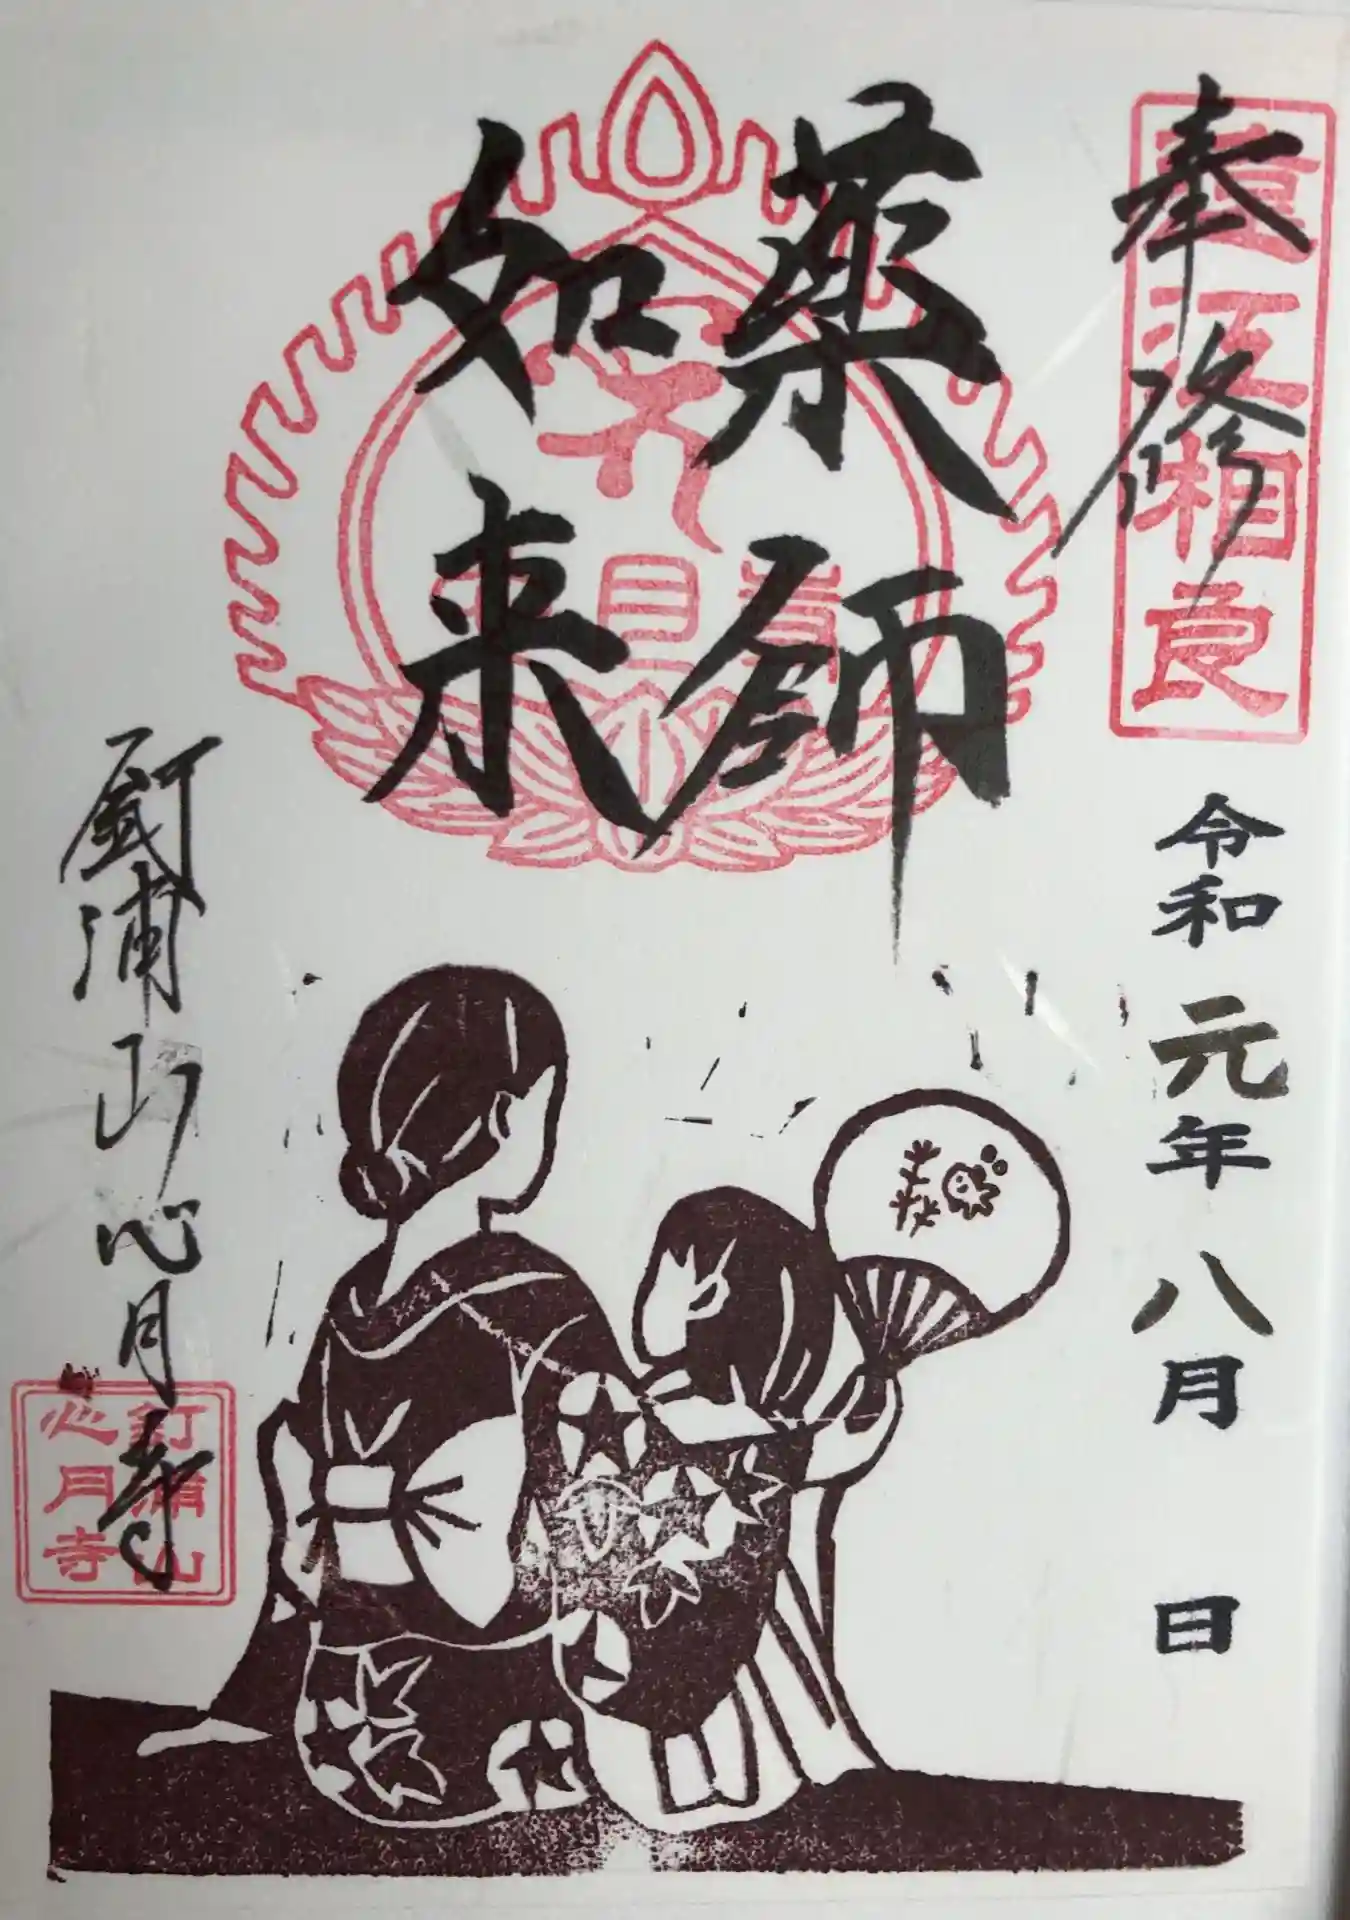 奉修
遠江相良
令和元年八月 日
薬師
如来
釘浦山心月寺
釘浦山
心月寺